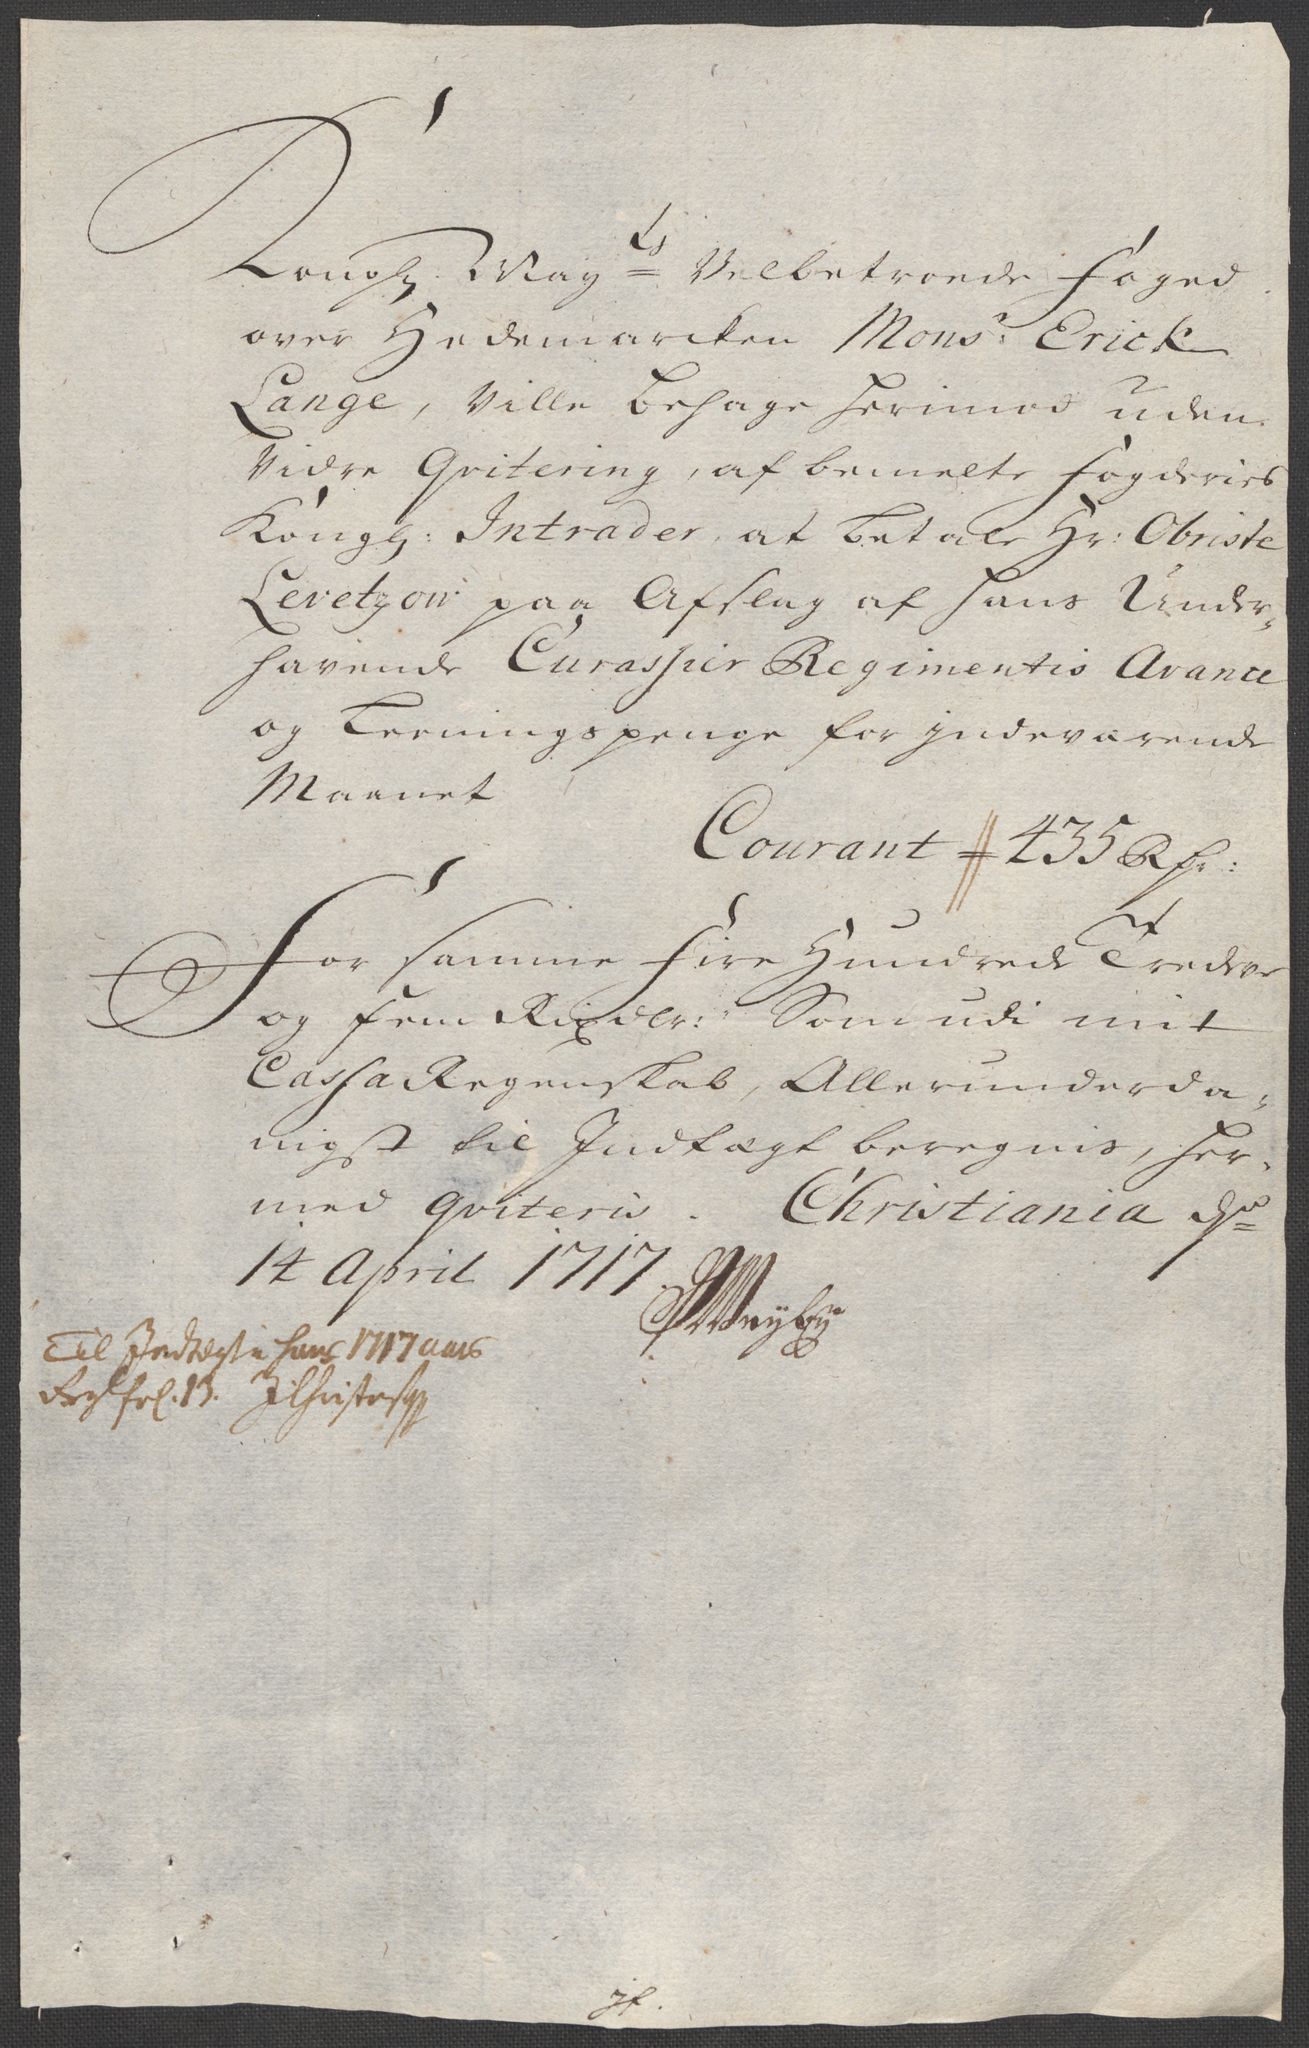 Kongl: May:ts Velbetroede Foged
over Hedemarcken Mons:r Erick
Lange, Ville behage herimod uden
vidre Qvitering, af bemelte Fogderies
Kongl: Intrader, at betale Hr: Obriste
Levetzow paa Afslag af hans Under-
havende Curassier Regimentis Avance
og Teeringspenge for jndeværende
Maanet
Courant # 435 Rdr:
For samme Fire Hundrede Tredve
og fem Rixdlr: Som udi mit
Cassa Regenskab, Allerunderda-
nigst til Indtægt beregnis, her-
med qviteris. Christiania d:
14 April 1717
Til Indtægt i hans 1717 aars
fol. 13.